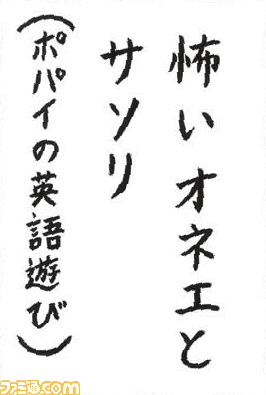 怖いオネエと
サソリ
(ポパイの英語遊び)
ファミ通.com